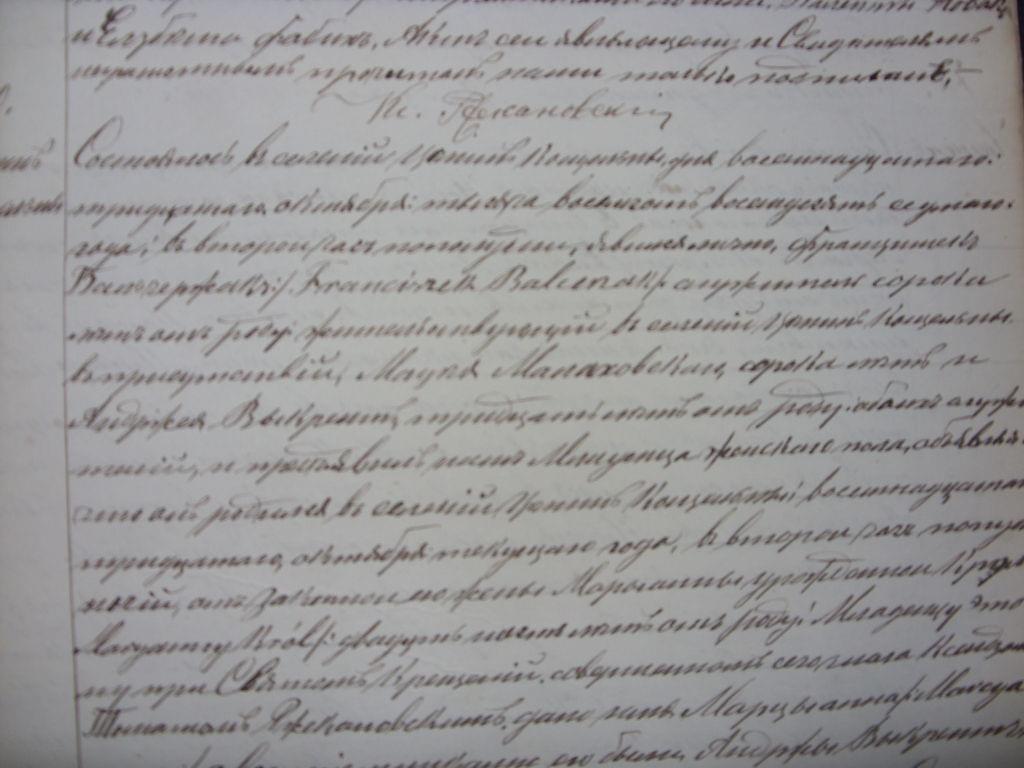 и Елзбета Фабихъ. Актъ сей являющему и Свидетелямъ
неграмотнымъ прочитанъ нами только подписанъ.
Кс. Ржехановскій
Состоялось въ селеній Цонтъ Косцельны, дня восемнадцатаго:
тридцатаго октября: тысяча восемсотъ восемдесятъ седмаго.
года; въ второй часъ пополудни, явился лично, Францишекъ
Бальцержакъ /: Franciszek Balcerzak :/ служитель сорока
лѣтъ отъ роду: жительствующій въ селеній Цонтъ Косцельны.
въ присутствій, Мацея Малаховскаго, сорока лѣтъ и
Анджея Выкрентъ тридцать лѣтъ отъ роду: обоихъ служи
телей, и предъявилъ намъ Младенца женскаго пола, объявляя
что онъ родился въ селеній Цонтъ Косцельный восемнадцатаго
тридцатаго октября текущаго года, въ второй часъ полуд
ный, отъ законной его жены Марыанны урожденной Круль
Maryanny Król /: двадцать шесть лѣтъ отъ роду: Младенцу это
му при Святомъ Крещеній. совершенномъ сегодня Ксендзомъ
Ржехановскимъ, дано имя Марцыанна /: Marcya
его были, Анджей Выкрентъ